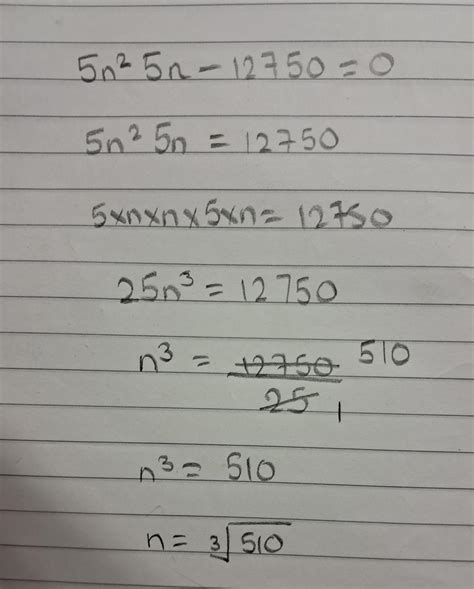 5n² 5n - 12750 = 0
5n² 5n = 12750
5×n×n×5×n = 12750
25n³ = 12750
n³ = 12750/25 510 1
n³ = 510
n = ∛510